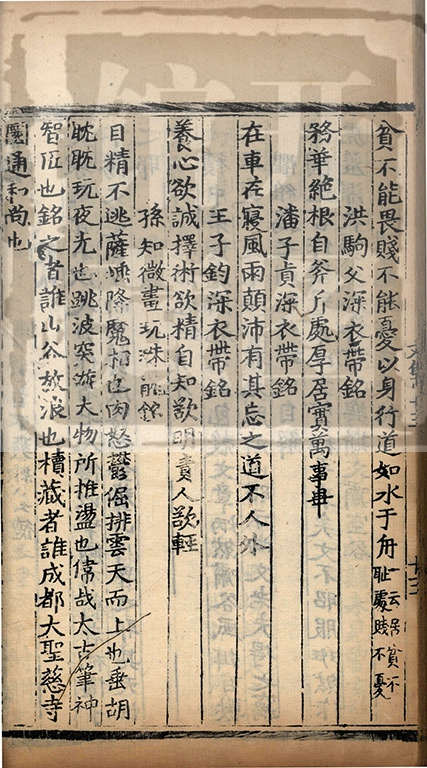 貧不能畏賤不能憂以身行道如水于舟一云居貧不恥處賤不憂
洪駒父深衣帶銘
務華絕根自斧斤處厚居實萬事畢
潘子真深衣帶銘
在車在寢風雨顛沛有其忘之道不人外
王子鈞深衣帶銘
養心欲誠擇術欲精自知欲明責人欲輕
孫知微畫玩珠銘
目精不逃薩埵降魔相也肉怒鬱倔排雲天而上也垂胡
眈眈玩夜光也跳波突游大物所推盪也偉哉太古筆神
智匠也銘之者誰山谷放浪也櫝藏者誰成都大聖慈寺
通和尚也